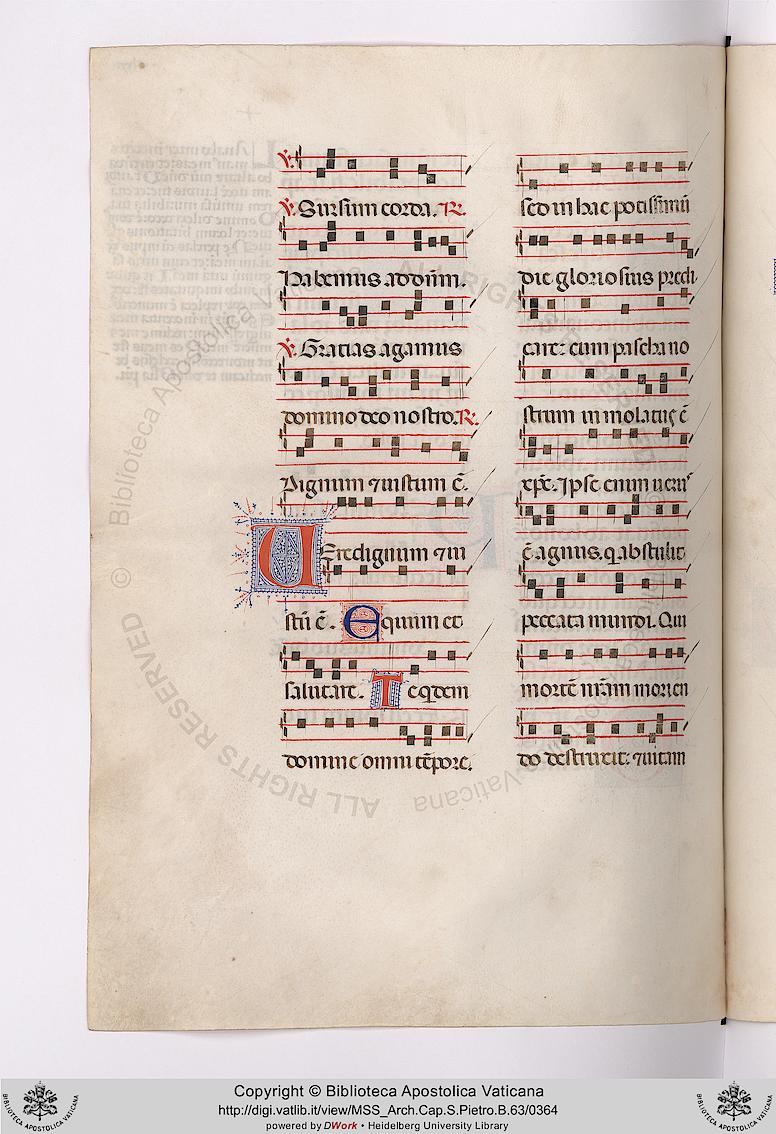 ℣. Sursum corda. ℟.
Habemus ad dn̄m.
℣. Gratias agamus
domino deo nostro. ℟.
Dignum ⁊ iustum ē.
UEredignum ⁊ iu
stū ē. Equum et
salutare. Te qdem
domine omni tēpore.
sed in hac potissimū
die gloriosius predi
care: cum pascha no
strum inmolatus ē
xp̄c. Ipse enim ueru
ē agnus. q abstulit
peccata mundi. Qui
mortē nr̄am morien
do destruxit: ⁊ uitam
© Biblioteca Apostolica Vaticana
ALL RIGHTS RESERVED
Copyright © Biblioteca Apostolica Vaticana
http://digi.vatlib.it/view/MSS_Arch.Cap.S.Pietro.B.63/0364
powered by DWork • Heidelberg University Library